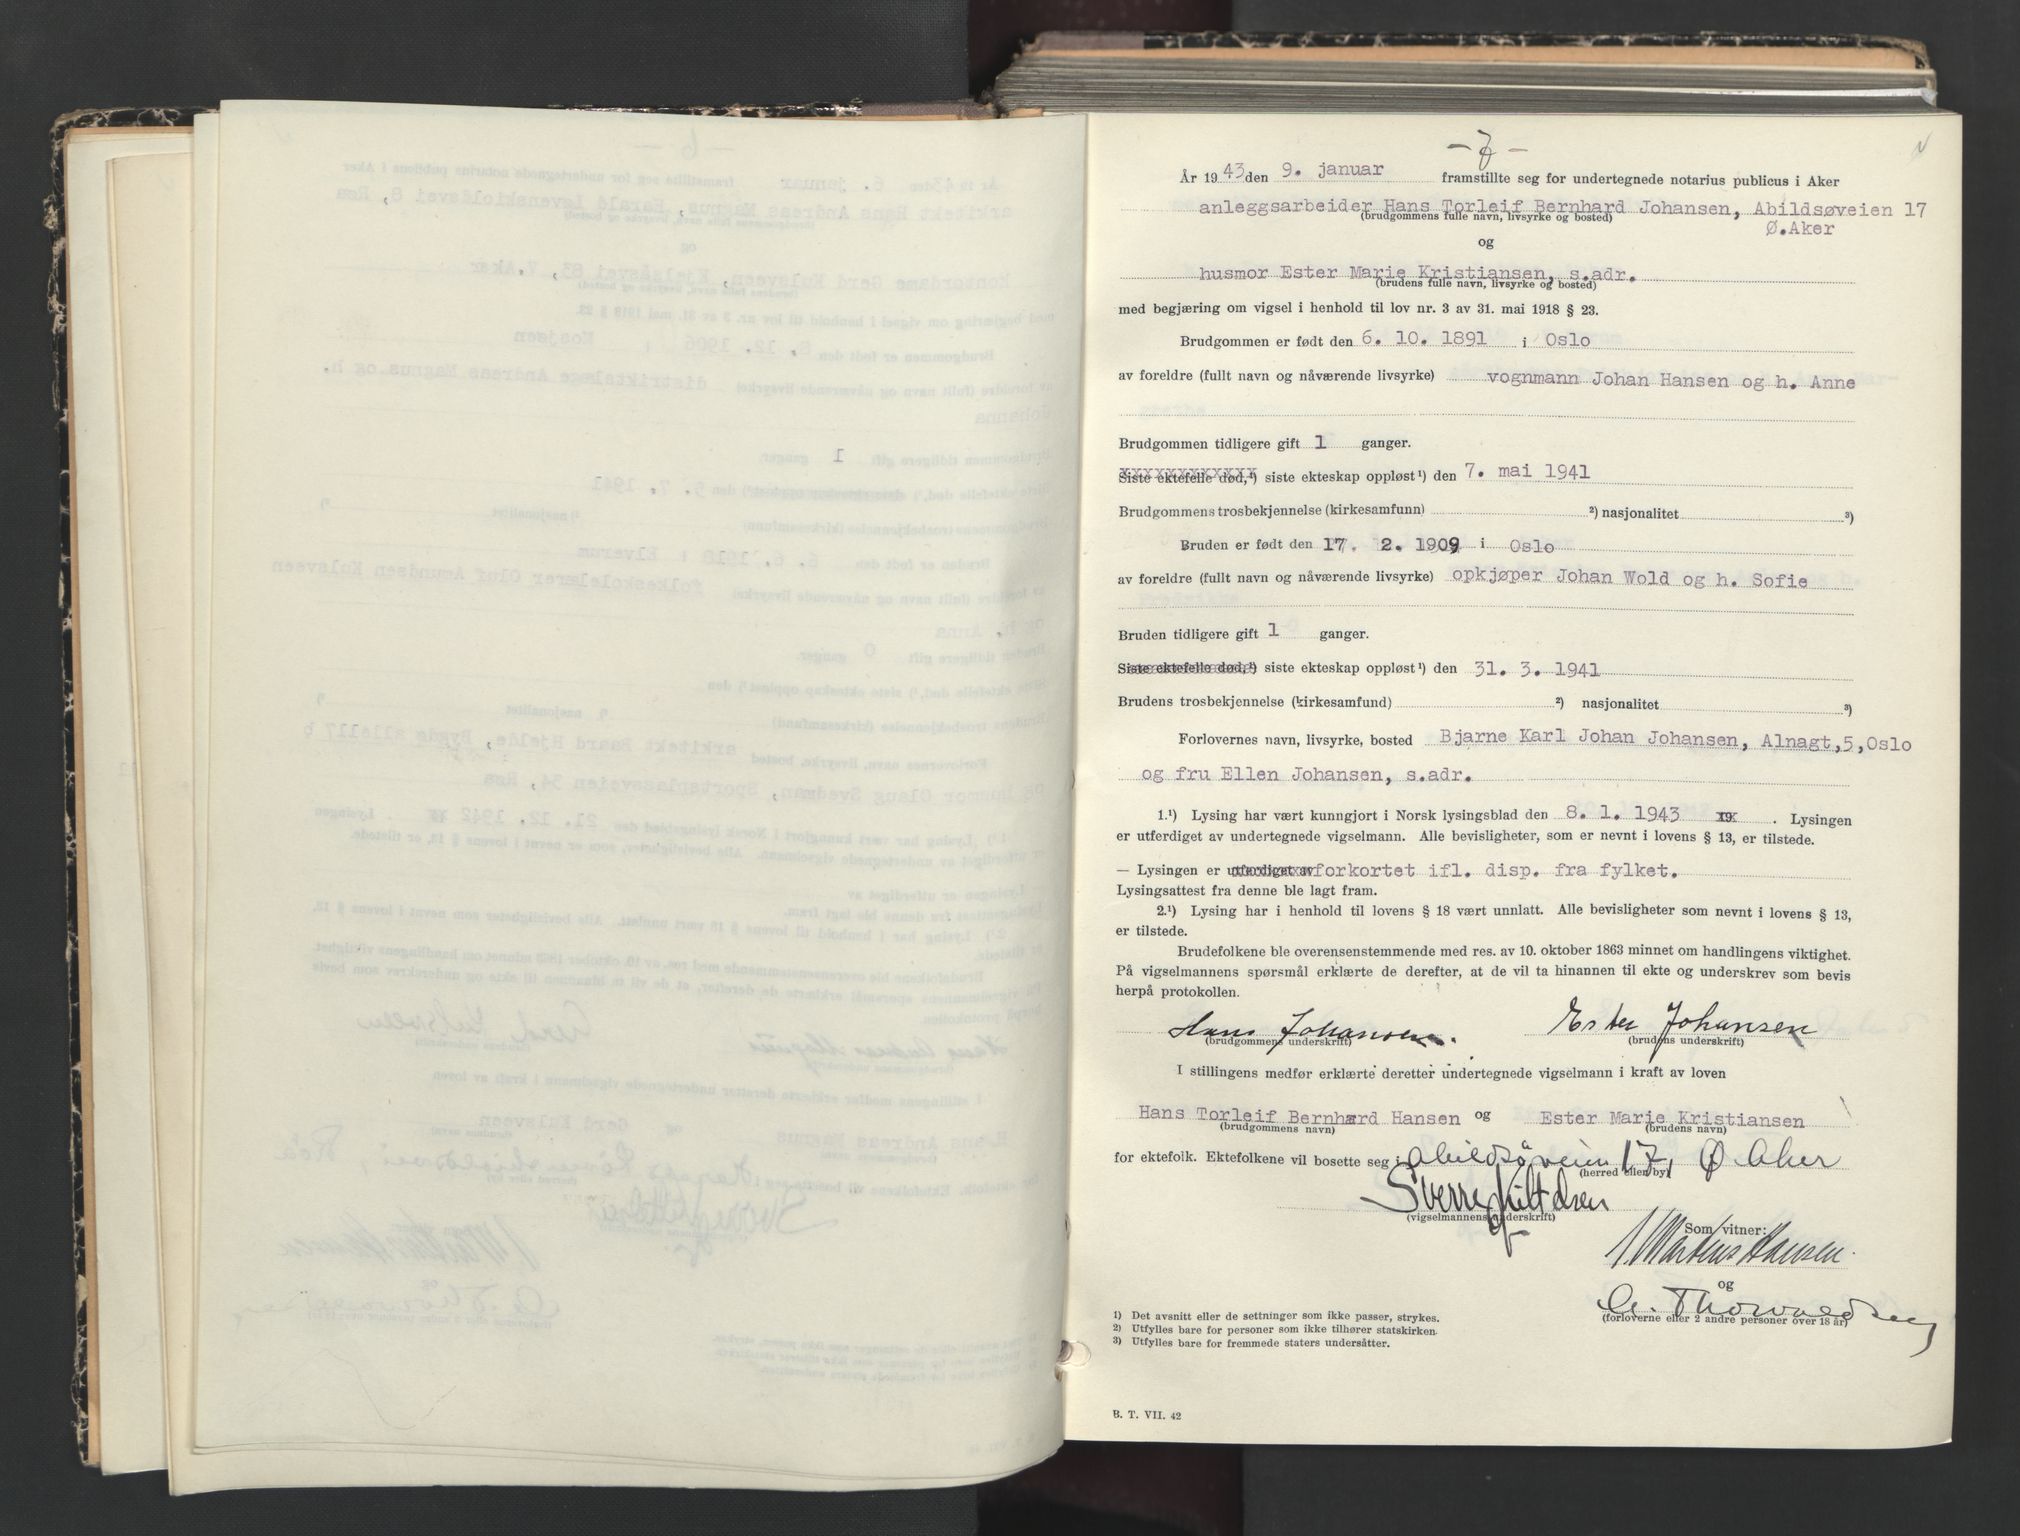 - 7 -
År 19 43 den 9. januar framstillte seg for undertegnede notarius publicus i Aker
anleggsarbeider Hans Torleif Bernhard Johansen, Abildsøveien 17
(brudgommens fulle navn, livsyrke og bosted)
Ø.Aker
og
husmor Ester Marie Kristiansen, s.adr.
(brudens fulle navn, livsyrke og bosted)
med begjæring om vigsel i henhold til lov nr. 3 av 31. mai 1918 § 23.
Brudgommen er født den 6. 10. 1891 i Oslo
av foreldre (fullt navn og nåværende livsyrke) vognmann Johan Hansen og h. Anne
Brudgommen tidligere gift 1 ganger.
Siste ektefelle død,¹) siste ekteskap oppløst¹) den 7. mai 1941
Brudgommens trosbekjennelse (kirkesamfunn) ²) nasjonalitet ³)
Bruden er født den 17. 2. 1909 i Oslo
av foreldre (fullt navn og nåværende livsyrke) opkjøper Johan Wold og h. Sofie
Bruden tidligere gift 1 ganger.
Siste ektefelle død,¹) siste ekteskap oppløst¹) den 31. 3. 1941
Brudens trosbekjennelse (kirkesamfund) ²) nasjonalitet ³)
Forlovernes navn, livsyrke, bosted Bjarne Karl Johan Johansen, Alnagt,5,Oslo
og fru Ellen Johansen, s.adr.
1.¹) Lysing har vært kunngjort i Norsk lysingsblad den 8. 1. 1943 19 . Lysingen
er utferdiget av undertegnede vigselmann. Alle bevisligheter, som er nevnt i lovens § 13, er tilstede.
— Lysingen er utferdiget av forkortet ifl. disp. fra fylket.
Lysingsattest fra denne ble lagt fram.
2.¹) Lysing har i henhold til lovens § 18 vært unnlatt. Alle bevisligheter som nevnt i lovens § 13,
er tilstede.
Brudefolkene ble overensenstemmende med res. av 10. oktober 1863 minnet om handlingens viktighet.
På vigselmannens spørsmål erklærte de derefter, at de vil ta hinannen til ekte og underskrev som bevis
herpå protokollen.
Hans Johansen. Ester Johansen
(brudgommens underskrift) (brudens underskrift)
I stillingens medfør erklærte deretter undertegnede vigselmann i kraft av loven
Hans Torleif Bernhard Hansen og Ester Marie Kristiansen
(brudgommens navn) (brudens navn)
for ektefolk. Ektefolkene vil bosette seg i Abildsøveien 17, Ø Aker
(herred eller by)
Sverre
(vigselmannens underskrift)
Som vitner:
Martins Hansen.
og
(forloverne eller 2 andre personer over 18 år)
1) Det avsnitt eller de settninger som ikke passer, strykes.
2) Utfylles bare for personer som ikke tilhører statskirken.
3) Utfylles bare for fremmede staters undersåtter.
B. T. VII. 42